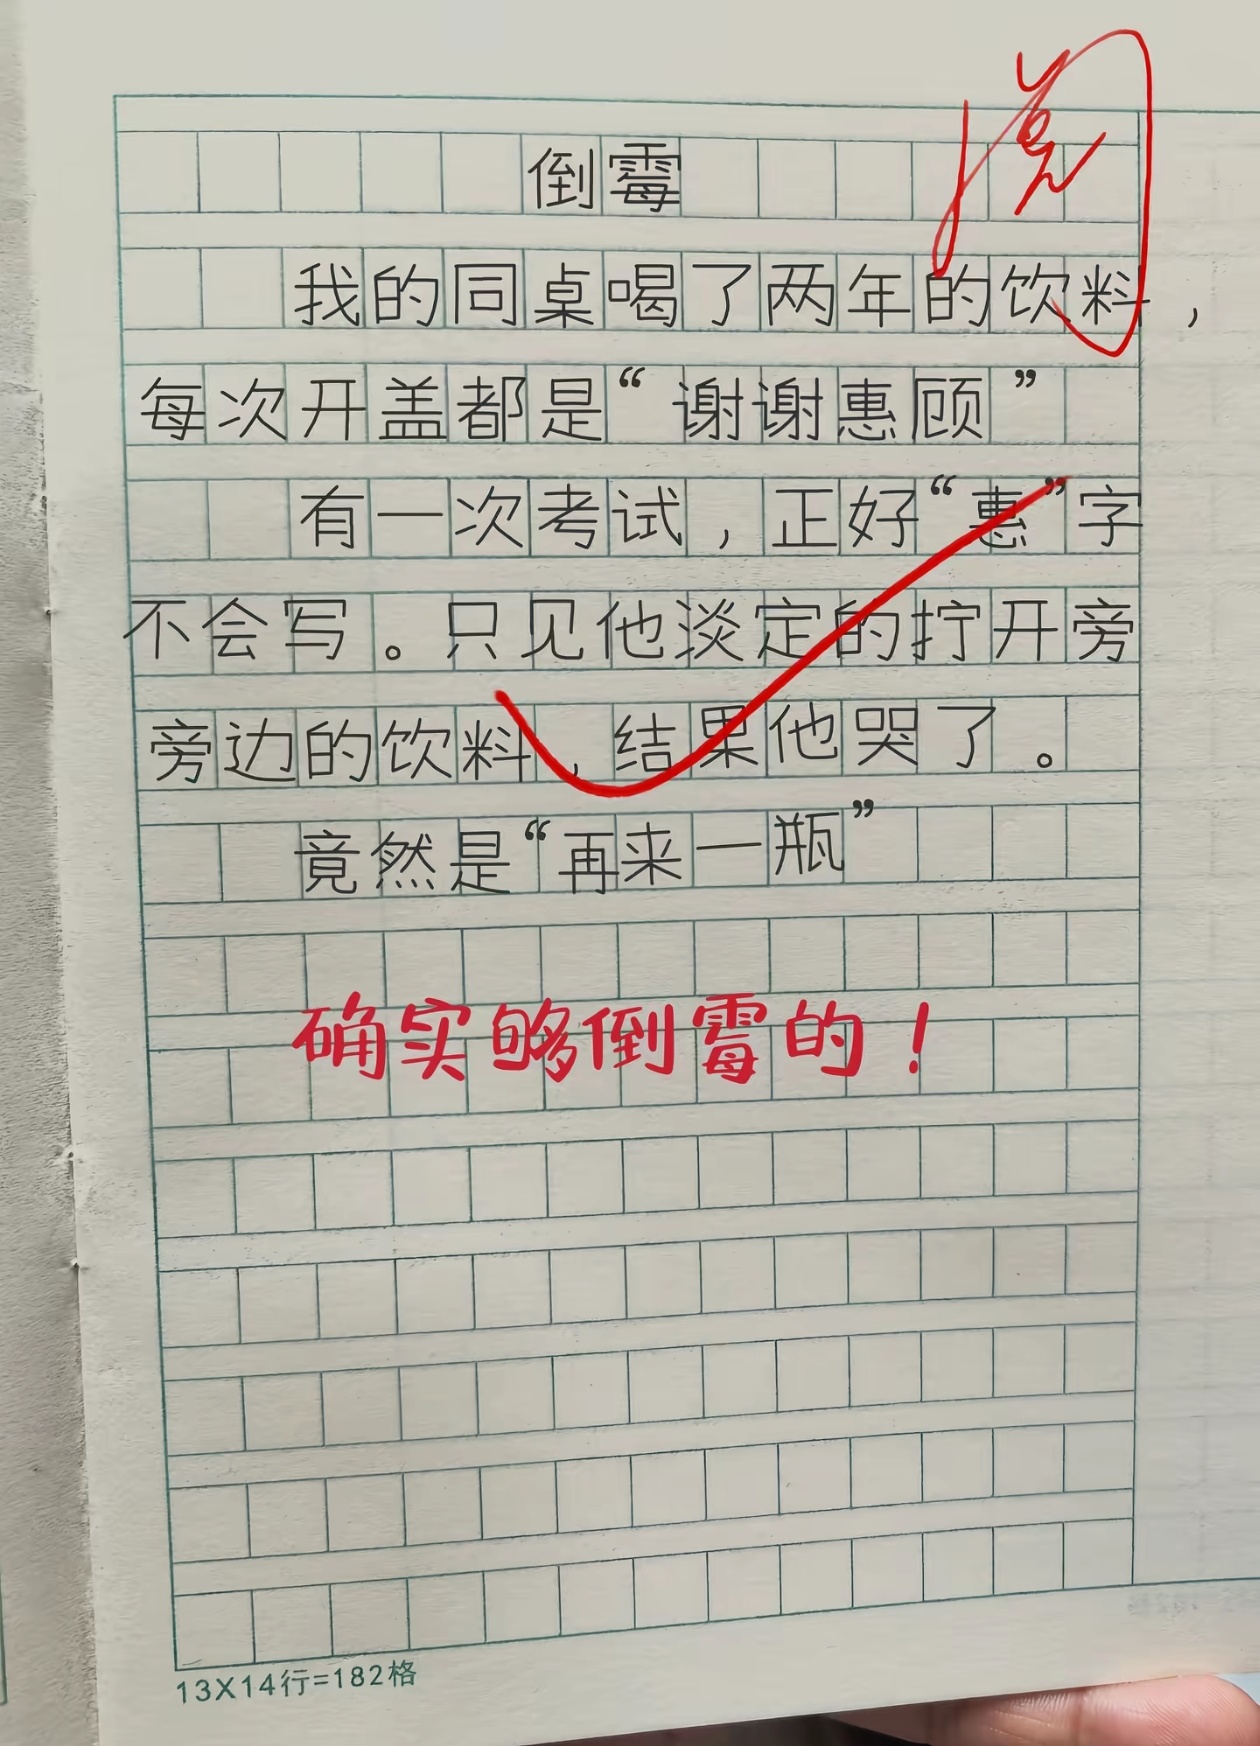 倒霉
我的同桌喝了两年的饮料，
每次开盖都是“谢谢惠顾”
有一次考试，正好“惠”字
不会写。只见他淡定的拧开旁
旁边的饮料，结果他哭了。
竟然是“再来一瓶”
确实够倒霉的！
13X14行=182格